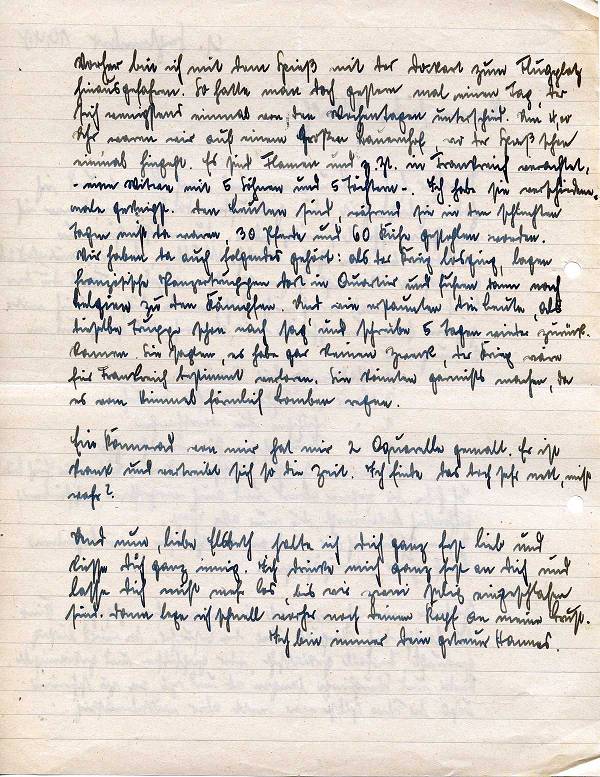 Vorher bin ich mit dem Spieß mit der Dockart zum Flugplatz
hinausgefahren. So hatte man doch gestern mal einen Tag, der
sich wenigstens einmal von den Wochentagen unterschied. Um
Uhr waren wir auf einem Großen Bauernhof, wo der Spieß schon
einmal hingeht. Es sind Flamen und z. Zt. in Frankreich
- eine Witwe mit 5 Söhnen und 5 Töchtern -. Ich habe sie verschiedene-
male geknipst. Den Leuten sind, während sie in den schlechten
Tagen nicht da waren, 30 Pferde und 60 Kühe gestohlen worden.
Wir haben da auch folgendes gehört: als der Krieg losging, lagen
französische Panzertruppen dort in Quartier und fuhren dann nach
Belgien zu den Kämpfen. Und wie erstaunten die Leute, als
dieselbe Truppe schon nach sag' und schreibe 5 Tagen wieder zurück-
kamen. Sie sagten, es habe gar keinen Zweck, der Krieg wäre
für Frankreich bestimmt verloren. Sie könnten garnichts machen, da
es vom Himmel förmlich Bomben regne.
Ein Kamerad von mir hat mir 2 Aquarelle gemalt. Er ist
krank und vertreibt sich so die Zeit. Ich finde das doch sehr nett, nicht
wahr?
Und nun, liebe Elsbeth halte ich Dich ganz fest lieb und
küsse Dich ganz innig. Ich drücke mich ganz fest an Dich und
lasse Dich nicht mehr los, bis wir zwei selig eingeschlafen
sind. Dann lege ich schnell vorher noch Deinen Kopf an meine Brust.
Ich bin immer Dein getreuer Hannes.